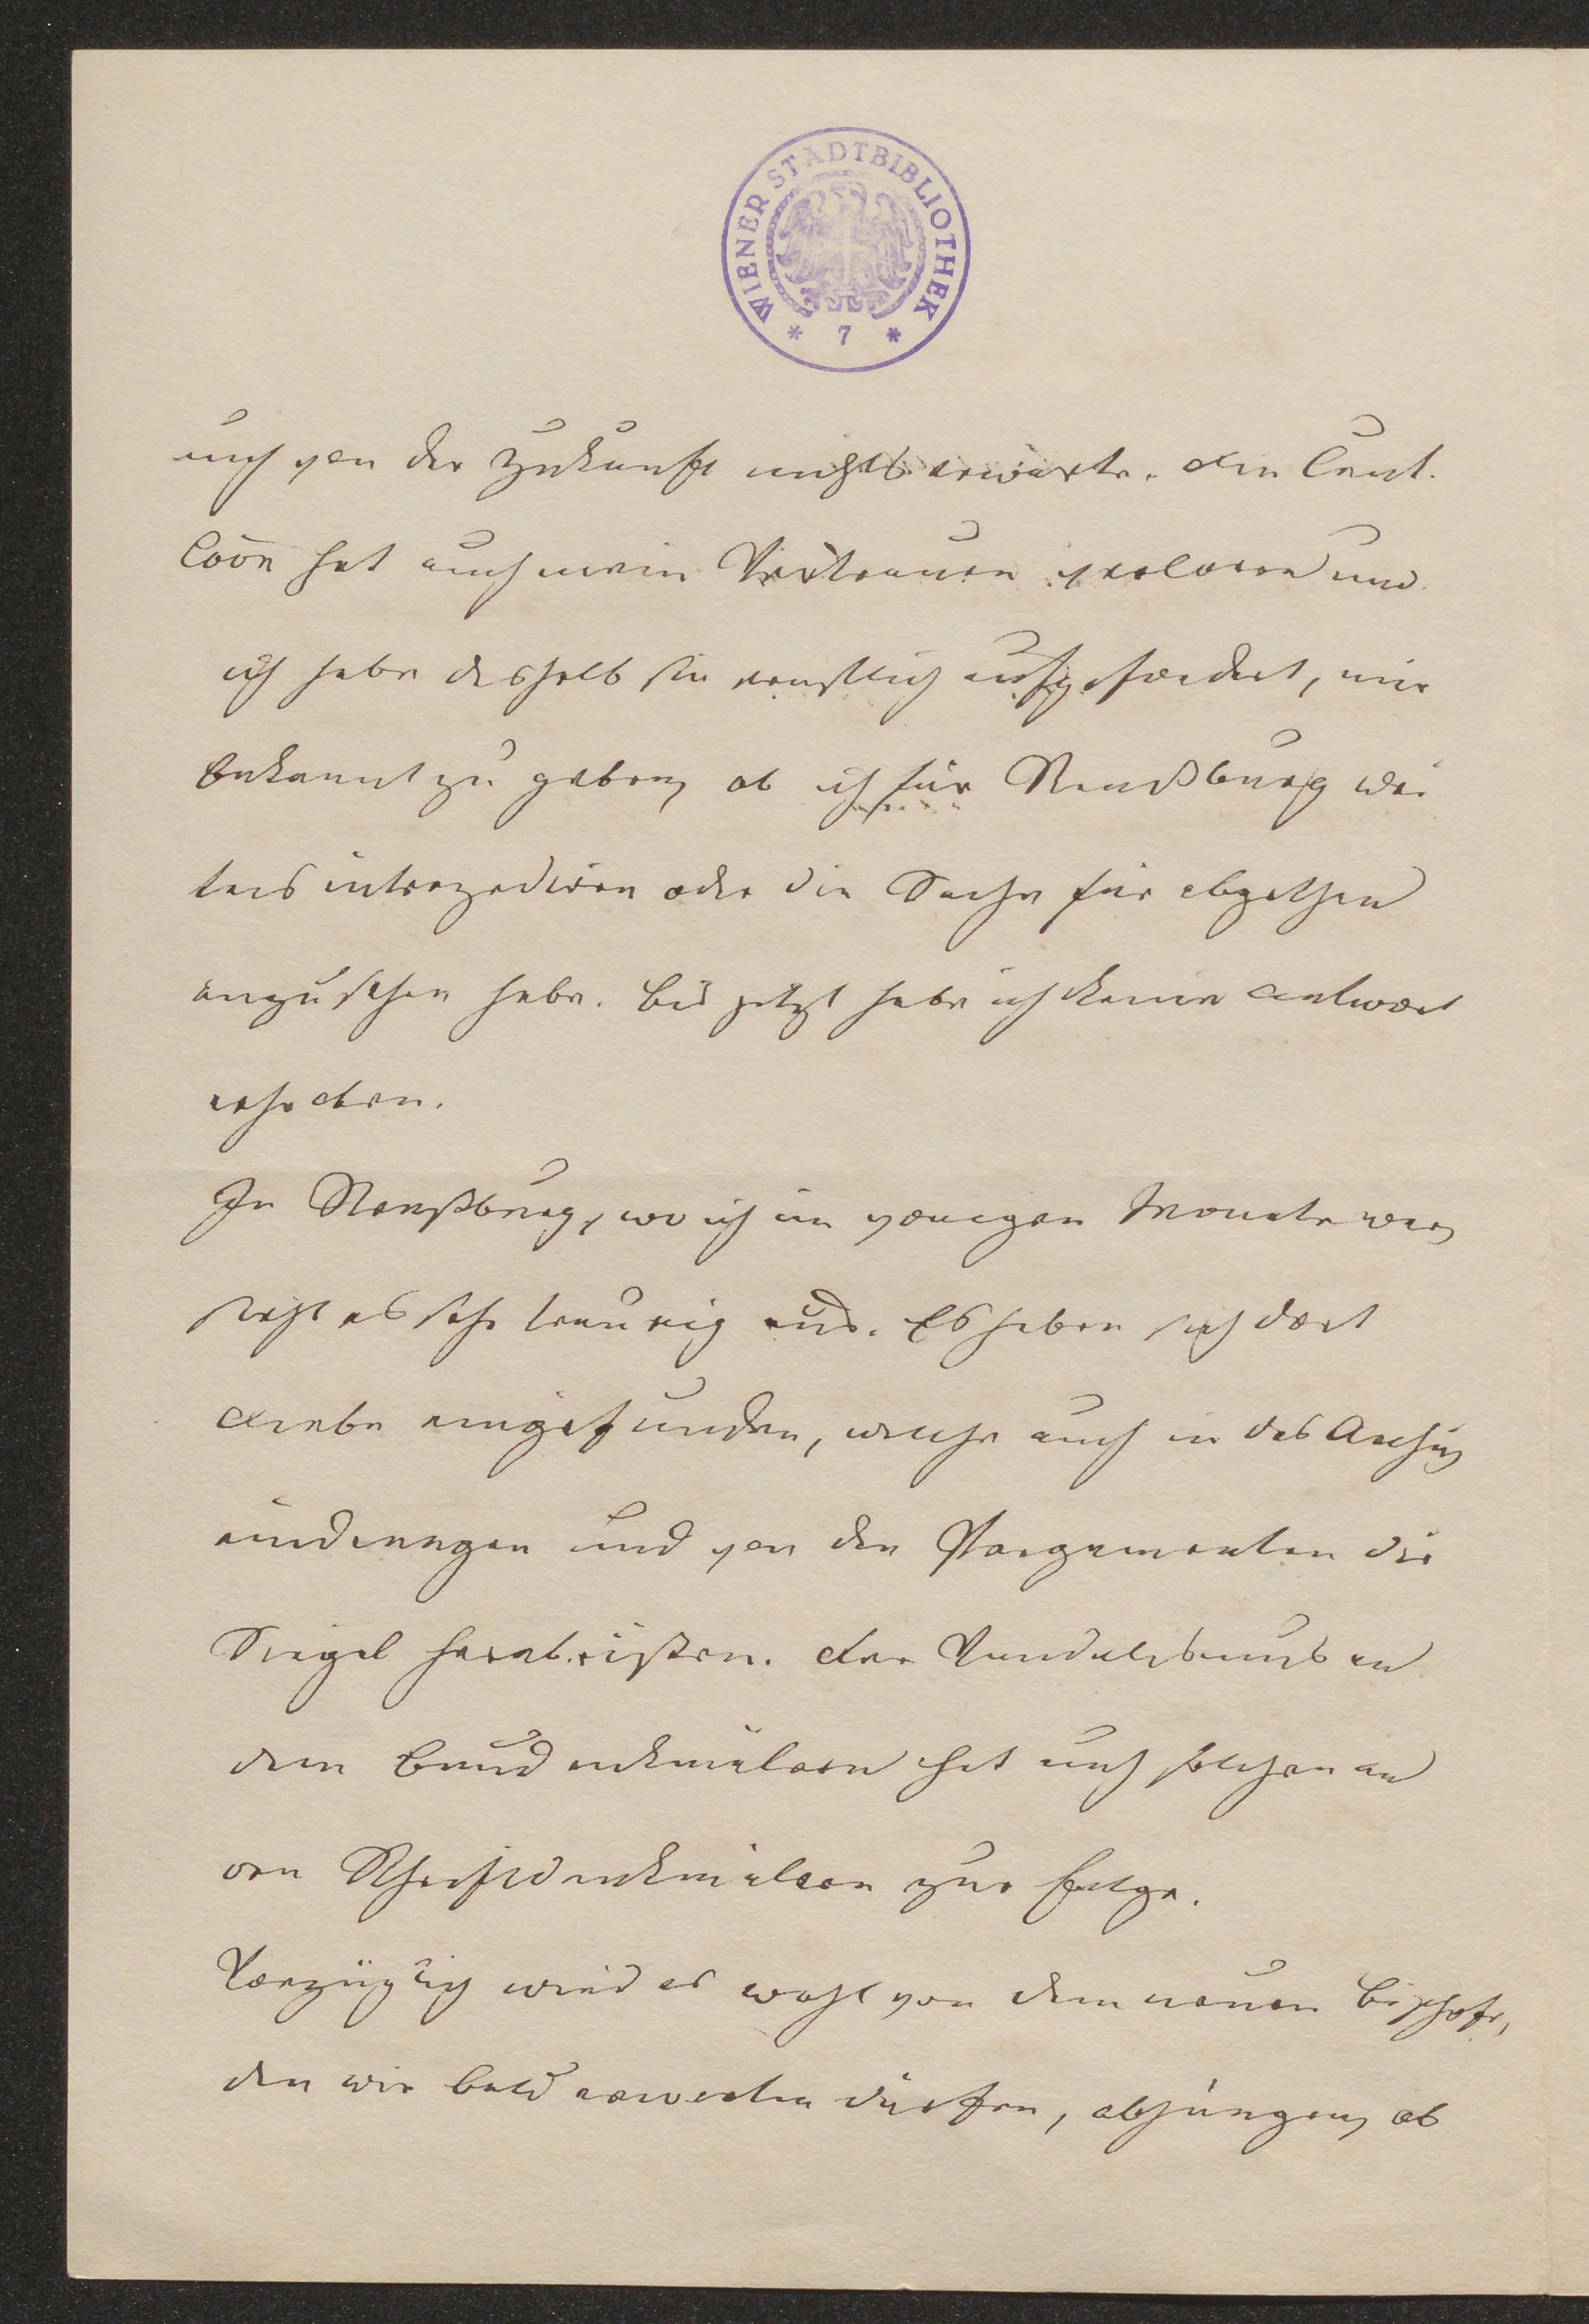 WIENER STADTBIBLIOTHEK
* 7 *
auch von der Zukunft nichts erwarte. Die Cent.
Coon hat auch mein Vertrauen verloren und
ich habe deshalb sie ernstlich aufgefordert, mir
bekannt zu geben, ob ich für Runßburg wei
ters interzediren oder die Sache für abgethan
anzusehen habe. Bis jetzt habe ich keine Antwort
erhalten.
In, wo ich im vorigen Monate war,
sieht es sehr traurig aus. Es haben sich dort
Diebe eingefunden, welche auch in das Archiv
eindrangen und von den Pergamenten die
Siegel herabrissen. Der Vandalismus an
den Baudenkmälern hat auch solchen an
den Schriftdenkmälern zur Folge.
Vorzüglich wird es wohl von dem neuen Bischofe,
den wir bald erwarten dürfen, abhängen, ob